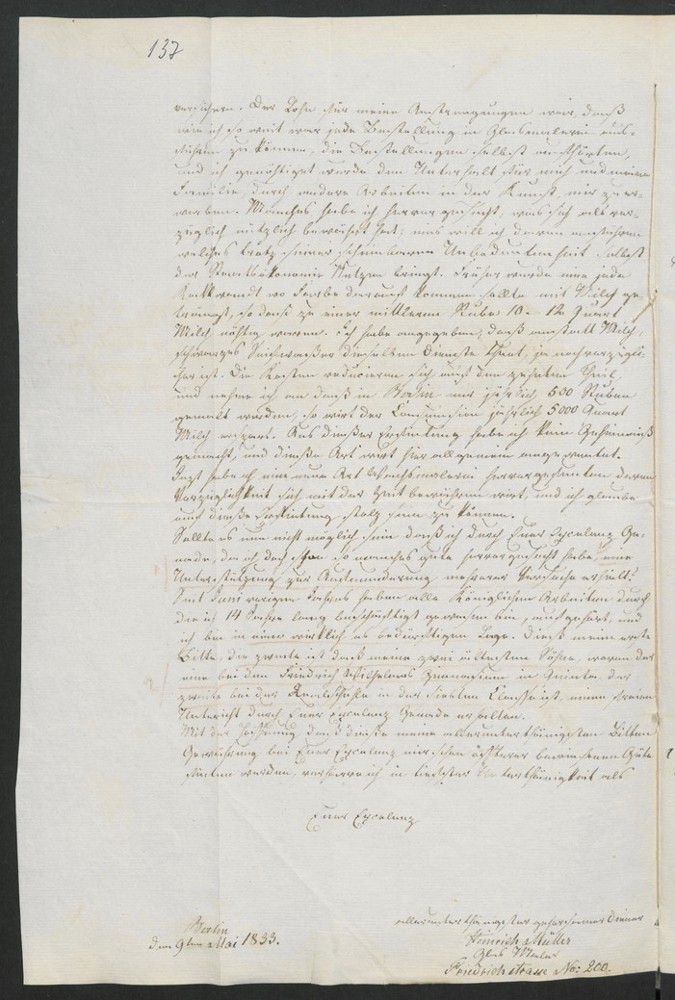 137
versichern. Der Lohn für meine Anstrengungen war, daß
wie ich so weit war jede Bestellung in Glasmalerei aus-
führen zu können, die Bestellungen selbst aufhörten,
und ich genöthiget wurde den Unterhalt für mich und meine
Familie, durch andere Arbeiten in der Kunst, mir zu er-
werben. Manches habe ich hervor gebracht, was sich als vor-
züglich nützlich bewährt hat: nur will ich davon anführen
welches trotz seiner scheinbaren Unbedeutenheit selbst
der Staatsökonomie Nutzen bringt. Früher wurde eine jede
Kalkwand wo Farbe darauf kommen sollte mit Milch ge-
tränkt, so daß zu einer mittleren Stube 10 – 12 Quart
Milch nöthig waren. Ich habe angegeben, daß anstatt Milch,
schwarzes Seifwasser dieselben Dienste thut, ja noch vorzügli-
cher ist. Die Kosten reducieren sich auf den zehnten Theil,
und nehme ich an daß in Berlin nur jährlich 500 Stuben
gemalt werden, so wird der Consumtion jährlich 5000 Quart
Milch erspart. Aus dieser Erfindung habe ich kein Geheimniß
gemacht, und diese Art wird hier allgemein angewendet.
Jetzt habe ich eine neue Art Wachsmalerei hervorgebracht deren
Vorzüglichkeit sich mit der Zeit bewähren wird, und ich glaube
auf diese Erfindung stolz sein zu können.
Sollte es nun nicht möglich sein daß ich durch Euer Excelenz Gna-
nade, da ich doch schon so manches gute hervorgebracht habe, eine
Unterstützung zur Aufmunderung mehrerer Versuche erhielt?
Seit Juni vorigen Jahres haben alle Königlichen Arbeiten durch
die ich 14 Jahre lang beschäftigt gewesen bin, aufgehört, und
ich bin in einer wirklich bedürftigen Lage. Dieß meine erste
Bitte, die zweite ist daß meine zwei ältesten Söhne, wovon der
eine bei dem Friedrich Wilhelms Gymnasium in Quinta, der
zweite bei der Realschule in der siebten Classe ist, einen freien
Unterricht durch Euer Excelenz Gnade erhalten.
Mit der Hoffnung daß diese meine alleruntertänigsten Bitten
Gewährung bei Euer Excelenz mir schon öfterer bewiesenen Güte
finden werden, verharre ich in tiefster Unterthänigkeit als
Euer Excelenz
alleruntertänigster gehorsamer Diener
Heinrich Müller
Glas Maler
Friedrichstrasse No: 200.
Berlin
den 9ten Mai 1833.